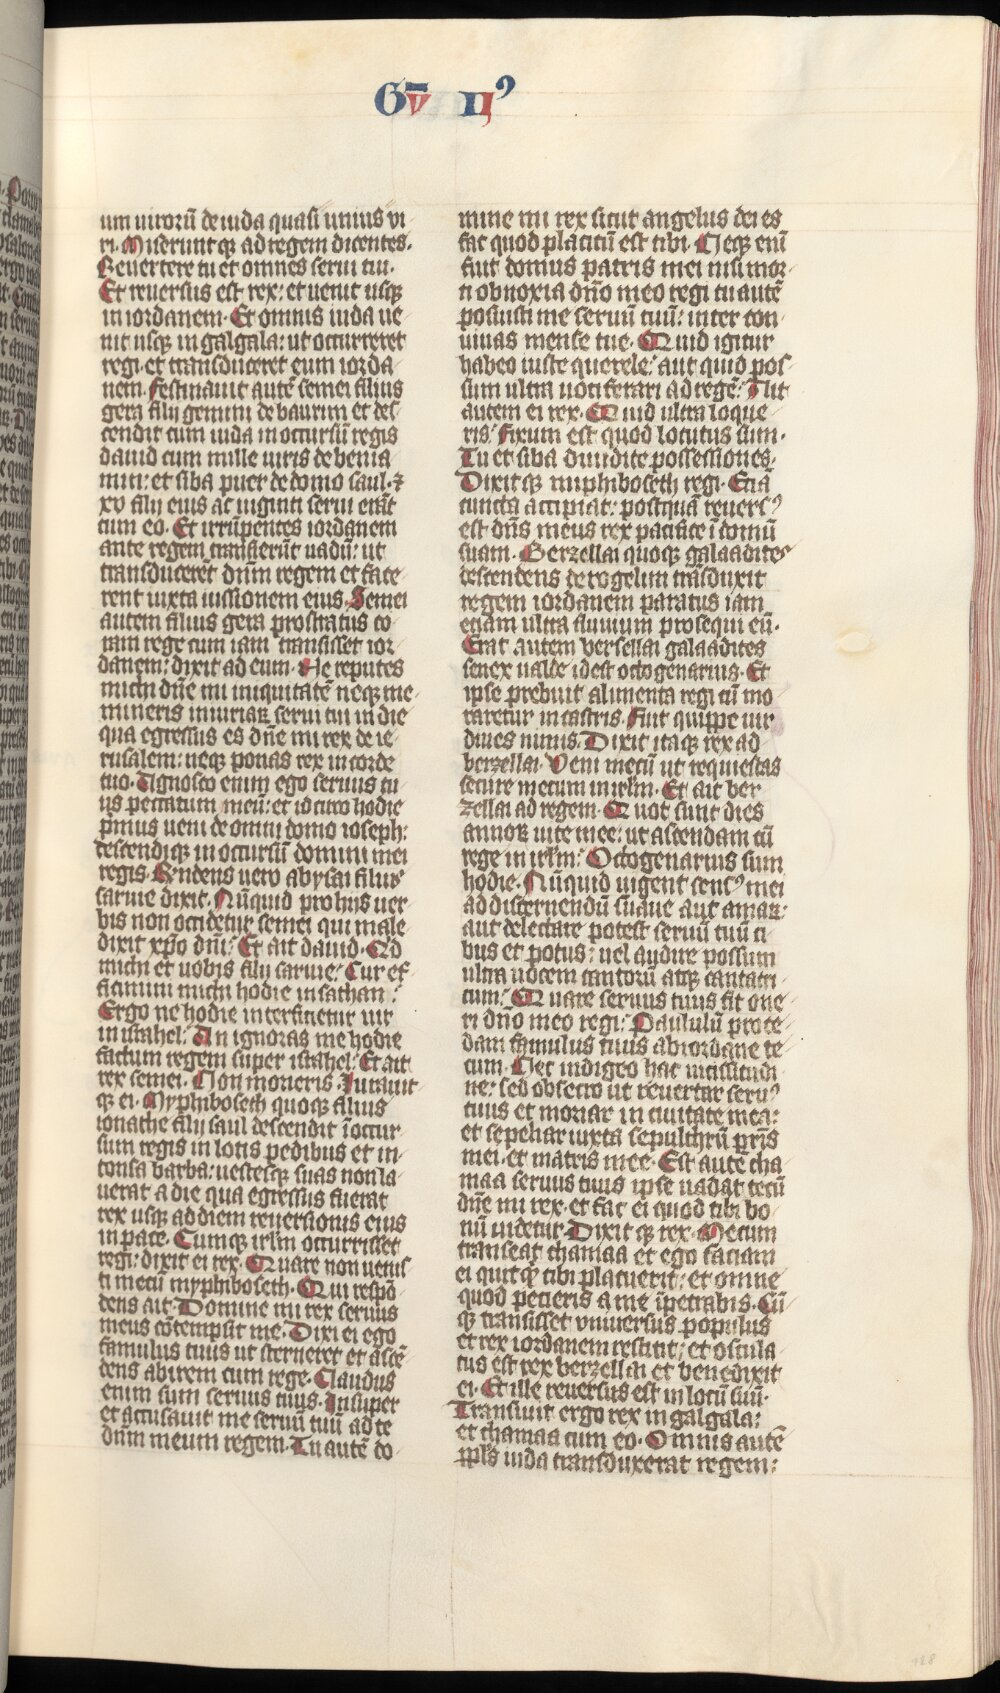 Gū IIꝰ
um uirorū de iuda quasi unius vi
ri. Miserunt qꝫ ad regem dicentes.
Reuertere tu et omnes serui tui.
Et reuersus est rex: et uenit usqꝫ
in iordanem. Et omnis iuda ue
nit usqꝫ in galgala: ut occurreret
regi. et transduceret eum iorda
nem. Festinauit autē semei filius
gera filij gemini de baurim et des
cendit cum iuda in occursū regis
dauid cum mille uiris de benia
min: et siba puer de domo saul. ⁊
xv filij eius ac uiginti serui erāt
cum eo. Et irrūpentes iordanem
ante regem transierūt uadū: ut
transducerēt dnm̄ regem et face
rent iuxta iussionem eius. Semei
autem filius gera prostratus co
ram rege cum iam transisset ior
danem: dixit ad eum. Ne reputes
michi dn̄e mi iniquitatē neqꝫ me
mineris iniuriaꝝ serui tui in die
qua egressus es dn̄e mi rex de ie
rusalem: neqꝫ ponas rex in corde
tuo. Agnosco enim ego seruus tu
us peccatum meū: et idcirco hodie
p̄mus ueni de omni domo ioseph:
descendiqꝫ in occursū domini mei
regis. Rn̄dens uero abysai filius
saruie dixit. Nūquid pro hijs uer
bis non occidetur semei qui male
dixit xp̄o dn̄i? Et ait dauid. Qd̄
michi et uobis filij saruie? Cur ef
ficimini michi hodie in sathan?
Ergo ne hodie interficietur uir
in israhel? An ignoras me hodie
factum regem super israhel? Et ait
rex semei. Non morieris. Iurauit
qꝫ ei. Myphiboseth quoqꝫ filius
ionathe filij saul descendit ī occur
sum regis in lotis pedibus et in
tonsa barba: uestesqꝫ suas non la
uerat a die qua egressus fuerat
rex usqꝫ ad diem reuersionis eius
in pace. Cumqꝫ irl̄m occurrisset
regi: dixit ei rex. Quare non uenis
ti mecū myphiboseth. Qui respō
dens ait. Domine mi rex seruus
meus cōtempsit me. Dixi ei ego
famulus tuus ut sterneret et ascē
dens abirem cum rege. Claudus
enim sum seruus tuus. Insuper
et accusauit me seruū tuū ad te
dnm̄ meum regem. Tu autē do
mine mi rex sicut angelus dei es
fac quod placitū est tibi. Neqꝫ enī
fuit domus patris mei nisi mor
ti obnoxia dn̄o meo regi tu autē
posuisti me seruū tuū: inter con
uiuas mense tue. Quid igitur
habeo iuste querele? aut quid pos
sum ultra uociferari ad regē? Ait
autem ei rex. Quid ultra loque
ris? Fixum est quod locutus sum.
Tu et siba diuidite possessiones.
Dixitqꝫ miphiboseth regi. Eciā
cuncta accipiat: postquā reuersꝰ
est dn̄s meus rex pacifice ī domū
suam. Berzellai quoqꝫ galaadites
descendens de rogelim trāsduxit
regem iordanem paratus iam
etiam ultra fluuium prosequi eū.
Erat autem versellai galaadites
senex ualde idest octogenarius. Et
ipse prebuit alimenta regi cū mo
raretur in castris. Fuit quippe uir
diues nimis. Dixit itaqꝫ rex ad
berzellai. Veni mecū ut requiescas
secure mecum in irl̄m. Et ait ber
zellai ad regem. Quot sunt dies
annoꝝ uite mee: ut ascendam cū
rege in irl̄m? Octogenarius sum
hodie. Nūquid uigent sensꝰ mei
ad discernendū suaue aut amaꝝ:
aut delectare potest seruū tuū ci
bus et potus: uel audire possum
ultra uocem cantorū atqꝫ cantatri
cum? Quare seruus tuus sit one
ri dn̄o meo regi? Paululū proce
dam famulus tuus ab iordane te
cum. Nec indigeo hac uicissitudi
ne: sed obsecro ut reuertar seruꝰ
tuus et moriar in ciuitate mea:
et sepeliar iuxta sepulchrū pr̄is
mei. et matris mee. Est autē cha
maa seruus tuus ipse uadat tecū
dn̄e mi rex. et fac ei quod tibi bo
nū uidetur. Dixit qꝫ rex. Mecum
transeat chamaa et ego faciam
ei quitqꝫ tibi placuerit: et omne
quod pecieris a me īpetrabis. Cū
qꝫ transisset vniuersus populus
et rex iordanem restitit: et oscula
tus est rex berzellai et benedixit
ei. Et ille reuersus est in locū suū.
Transiuit ergo rex in galgala:
et chamaa cum eo. Omnis autē
ppl̄s iuda transduxerat regem:
128